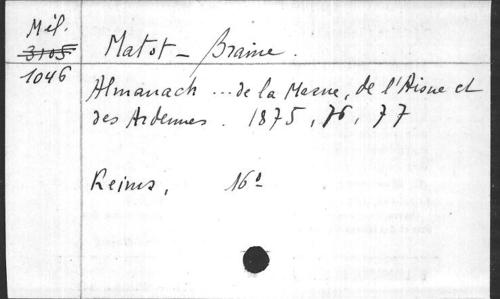 Mél.
3105
1046
Matot-Braine.
Almanach ... de la Marne, de l'Aisne et
des Ardennes. 1875, 76, 77
Reims, 16°